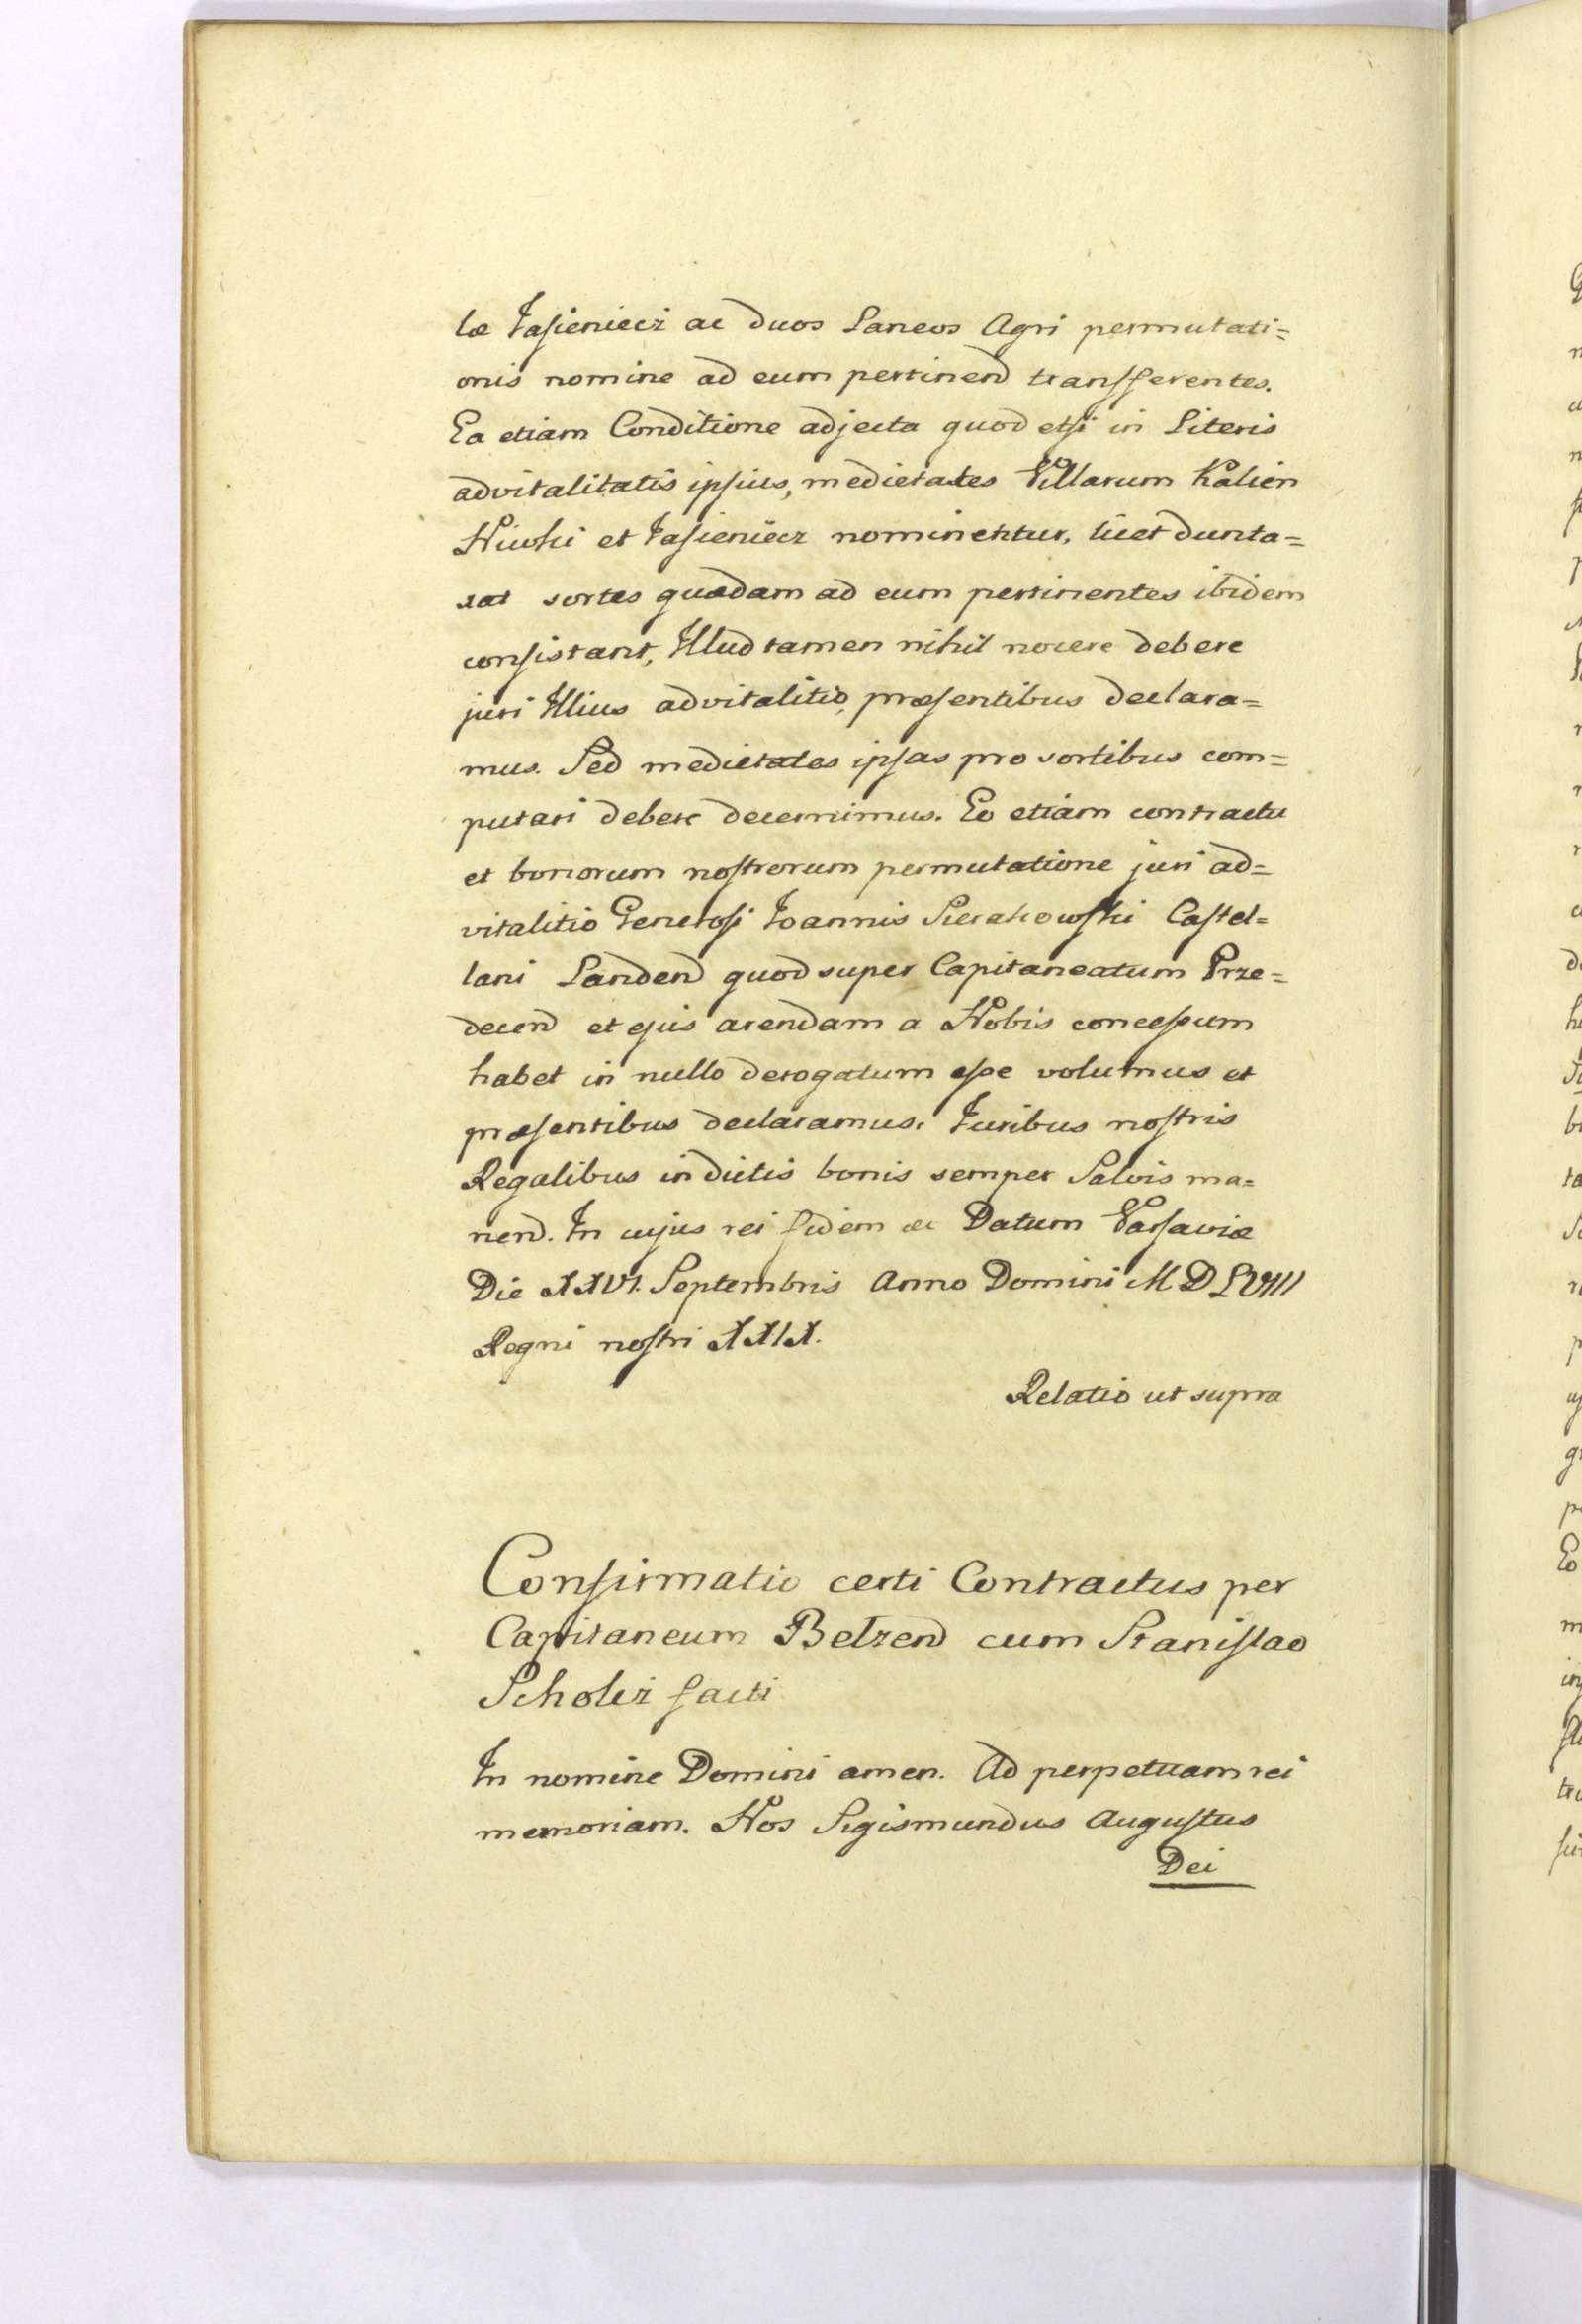 læ Jasieniecz ac duos Laneos Agri permutati=
onis nomine ad eum pertinend transfferentes.
Ea etiam Conditione adjecta quod etsi in Literis
advitalitatis ipsius, medietates Villarum Kalien
et Jasieniecz nominentur, licet dunta=
xat sortes quædam ad eum pertinentes ibidem
consistant, Illud tamen nihil nocere debere
juri Illius advitalitio, præsentibus declara=
mus. Sed medietates ipsas pro sortibus com=
putari debere decernimus. Eo etiam contractu
et bonorum nostrorum permutatione juri ad=
vitalitio Generosi Joannis Sierakowski Castel=
lani Landend quod super Capitaneatum Prze=
decend et ejus arendam a Nobis concessum
habet in nullo derogatum esse volumus et
præsentibus declaramus. Juribus nostris
Regalibus in dictis bonis semper Salvis ma=
nend. In cujus rei fidem &c Datum Varsaviæ
Die XXVI. Septembris Anno Domini MDLVIII
Regni nostri XXIX.
Relatio ut supra
Confirmatio certi Contractus per
Capitaneum Belzend cum Stanislao
Scholcz facti
In nomine Domini amen. Ad perpetuam rei
memoriam. Nos Sigismundus Augustus
Dei